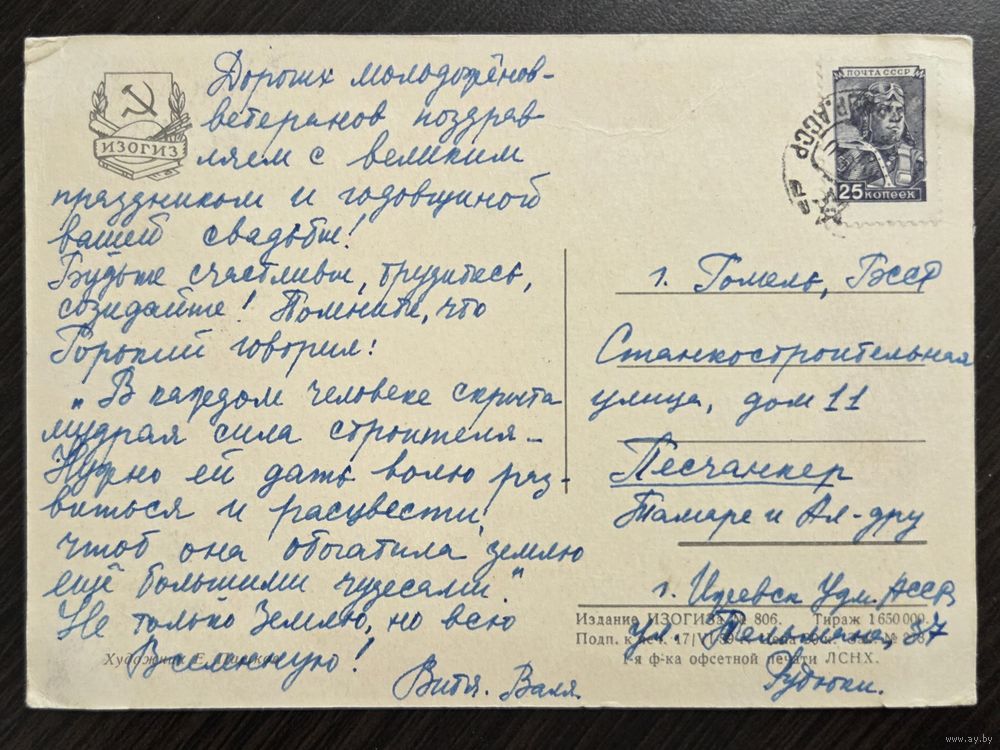 Дорогих молодожёнов-
ветеранов поздрав
ляем с великим
праздником и годовщиной
вашей свадьбы!
Будьте счастливы, трудитесь,
созидайте! Помните, что
Горький говорил:
„В каждом человеке скрыта
мудрая сила строителя –
Нужно ей дать волю раз-
виться и расцвести,
чтоб она обогатила землю
ещё большими чудесами".
Не только Землю, но всю
Вселенную!
Витя. Валя.
ИЗОГИЗ
Художник Е.
ПОЧТА СССР
25 КОПЕЕК
АССР
г. Гомель, БССР
Станкостроительная
улица, дом 11
Песчанкер
Тамаре и Ал-дру
г. Ижевск Удм. АССР
Издание ИЗОГИЗа № 806. Тираж 1 650 000.
ул. 87
Подп. к печ. 17/VI-59
1-я ф-ка офсетной печати ЛСНХ.
Рудюки.
www.ay.by